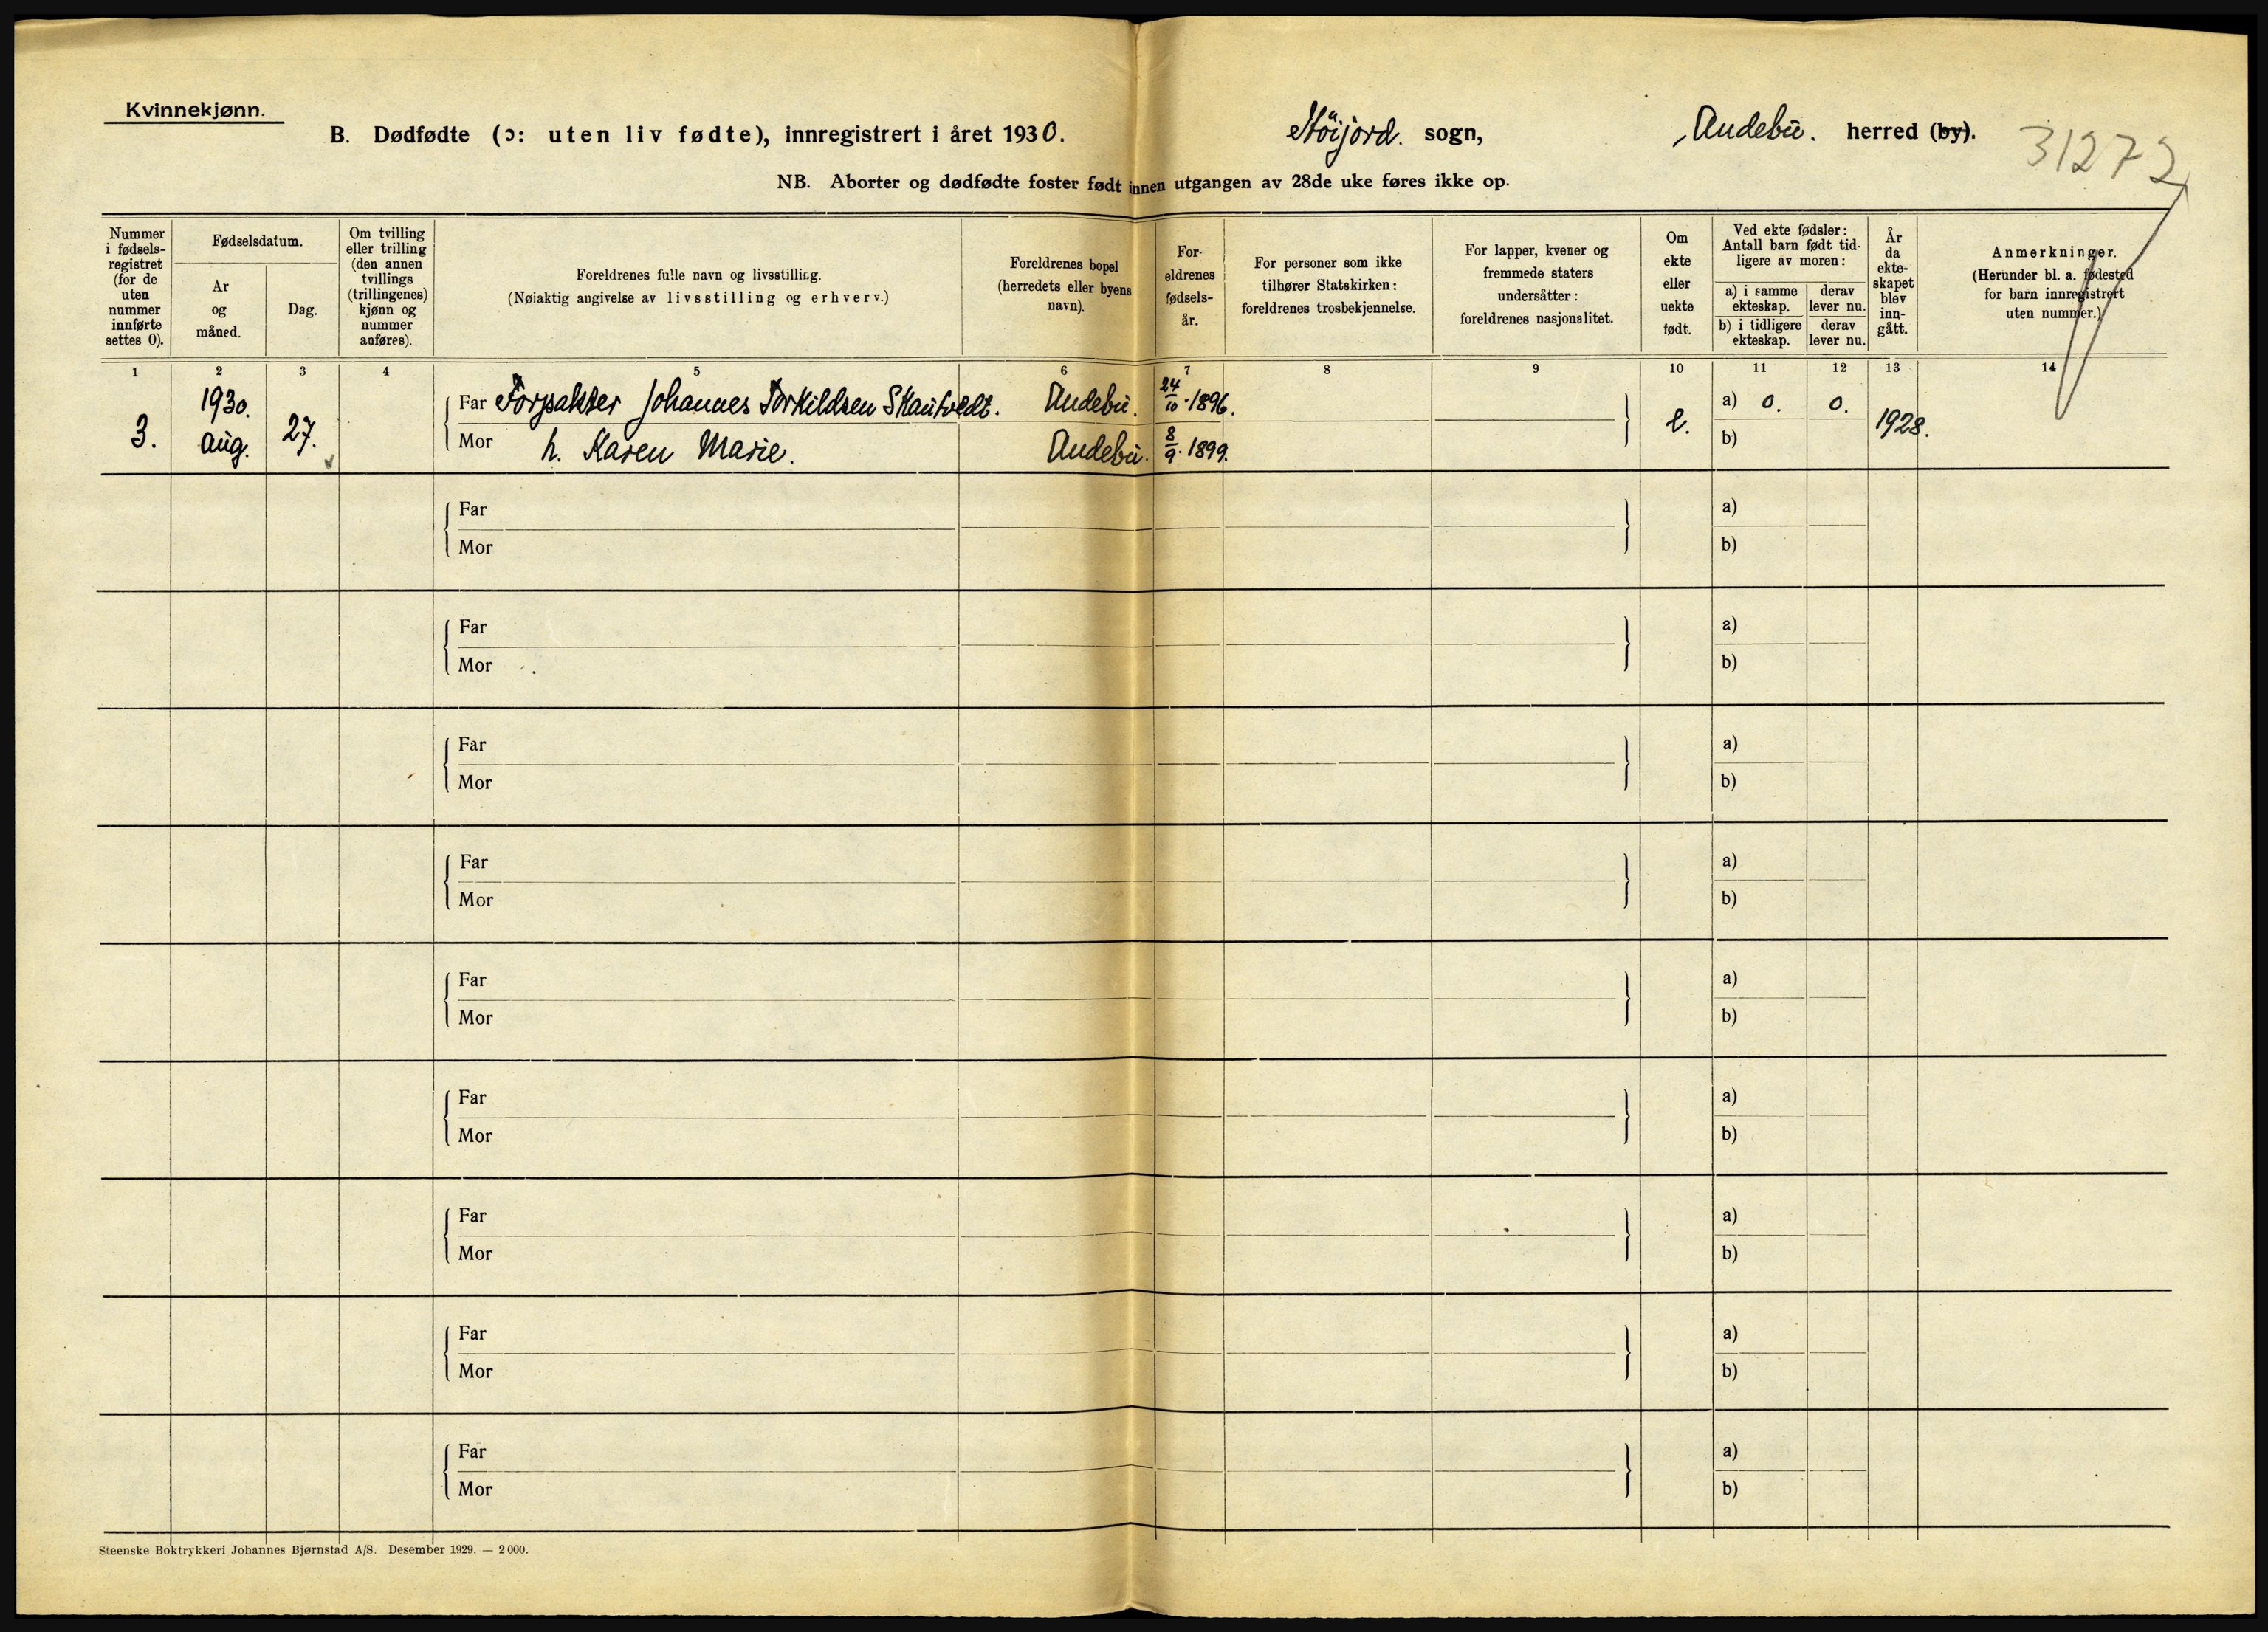 Kvinnekjønn.
B. Dødfødte (ɔ: uten liv fødte), innregistrert i året 1930. Höijord. sogn, Andebu. herred (by).
31272
NB. Aborter og dødfødte foster født innen utgangen av 28de uke føres ikke op.
Nummer i fødsels-registret (for de uten nummer innførte settes 0).
Fødselsdatum.
År og måned.
Dag.
Om tvilling eller trilling (den annen tvillings (trillingenes) kjønn og nummer anføres).
Foreldrenes fulle navn og livsstilling.
(Nøiaktig angivelse av livsstilling og erhverv.)
Foreldrenes bopel (herredets eller byens navn).
For-eldrenes fødsels-år.
For personer som ikke tilhører Statskirken: foreldrenes trosbekjennelse.
For lapper, kvener og fremmede staters undersåtter: foreldrenes nasjonalitet.
Om ekte eller uekte født.
Ved ekte fødsler: Antall barn født tid-ligere av moren:
a) i samme ekteskap.
derav lever nu.
b) i tidligere ekteskap.
derav lever nu.
År da ekte-skapet blev inn-gått.
Anmerkninger.
(Herunder bl. a. fødested for barn innregistrert uten nummer.)
1 2 3 4 5 6 7 8 9 10 11 12 13 14
3. 1930. aug. 27.
Far Forpakter Johannes Torkildsen Skautvedt. Andebu. 24/10 1896. e. a) 0. 0. 1928.
Mor h. Karen Marie. Andebu. 8/9 1899. b)
Far a)
Mor b)
Far a)
Mor b)
Far a)
Mor b)
Far a)
Mor b)
Far a)
Mor b)
Far a)
Mor b)
Far a)
Mor b)
Far a)
Mor b)
Far a)
Mor b)
Steenske Boktrykkeri Johannes Bjørnstad A/S. Desember 1929. — 2 000.